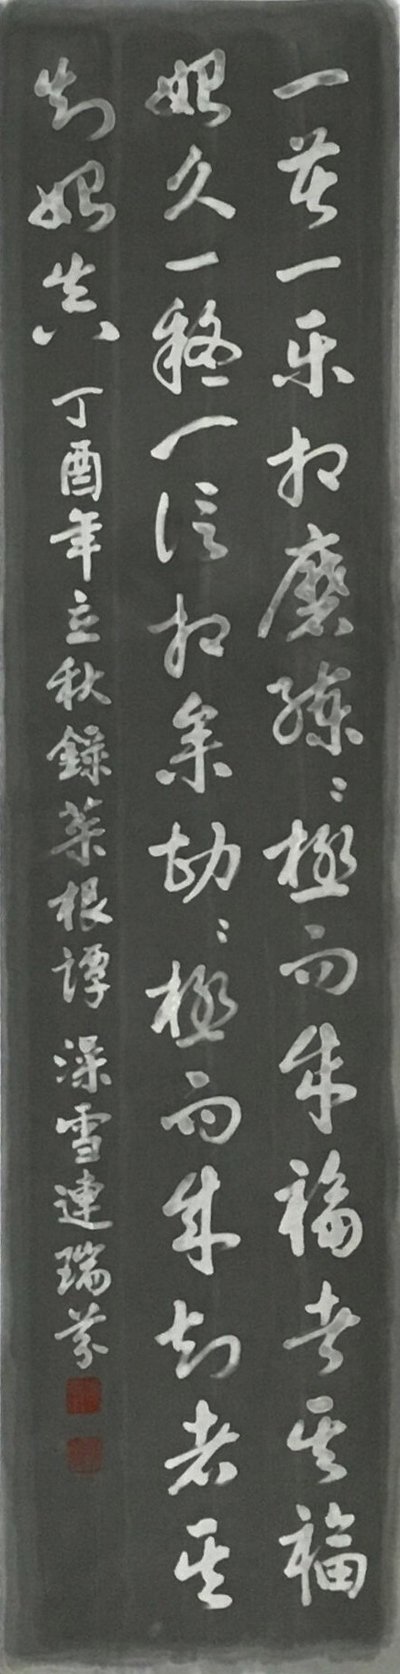 一苦一樂相磨練〻極而成福者其福
始久一疑一信相參勘〻極而成知者其
知始真 丁酉年立秋錄菜根譚 澡雪連瑞芬